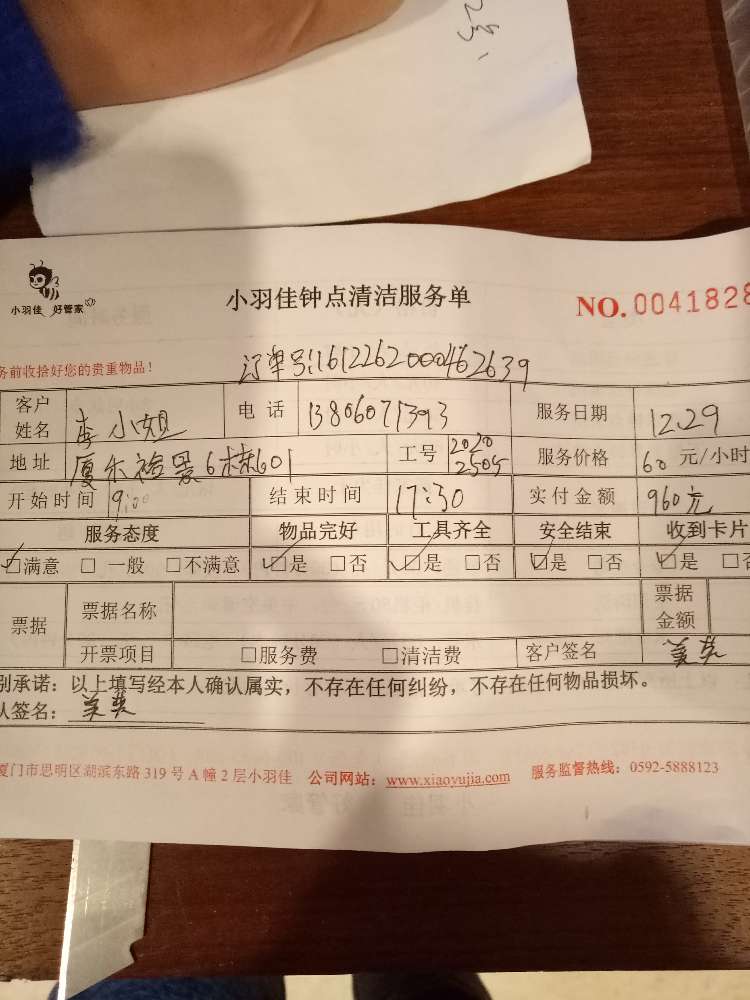 小羽佳 好管家
小羽佳钟点清洁服务单
NO. 0041828
务前收拾好您的贵重物品！
订单号:161226200046​2639
客户姓名 李小姐 电话 13806071393 服务日期 12.29
地址 6栋601 工号 2020 2505 服务价格 60 元/小时
开始时间 9:00 结束时间 17:30 实付金额 960元
服务态度 物品完好 工具齐全 安全结束 收到卡片
☑满意 □一般 □不满意 ☑是 □否 ☑是 □否 ☑是 □否 ☑是 □
票据 票据名称 票据金额
开票项目 □服务费 □清洁费 客户签名
别承诺：以上填写经本人确认属实，不存在任何纠纷，不存在任何物品损坏。
人签名：
厦门市思明区湖滨东路 319 号 A 幢 2 层小羽佳 公司网站：www.xiaoyujia.com 服务监督热线：0592-5888123